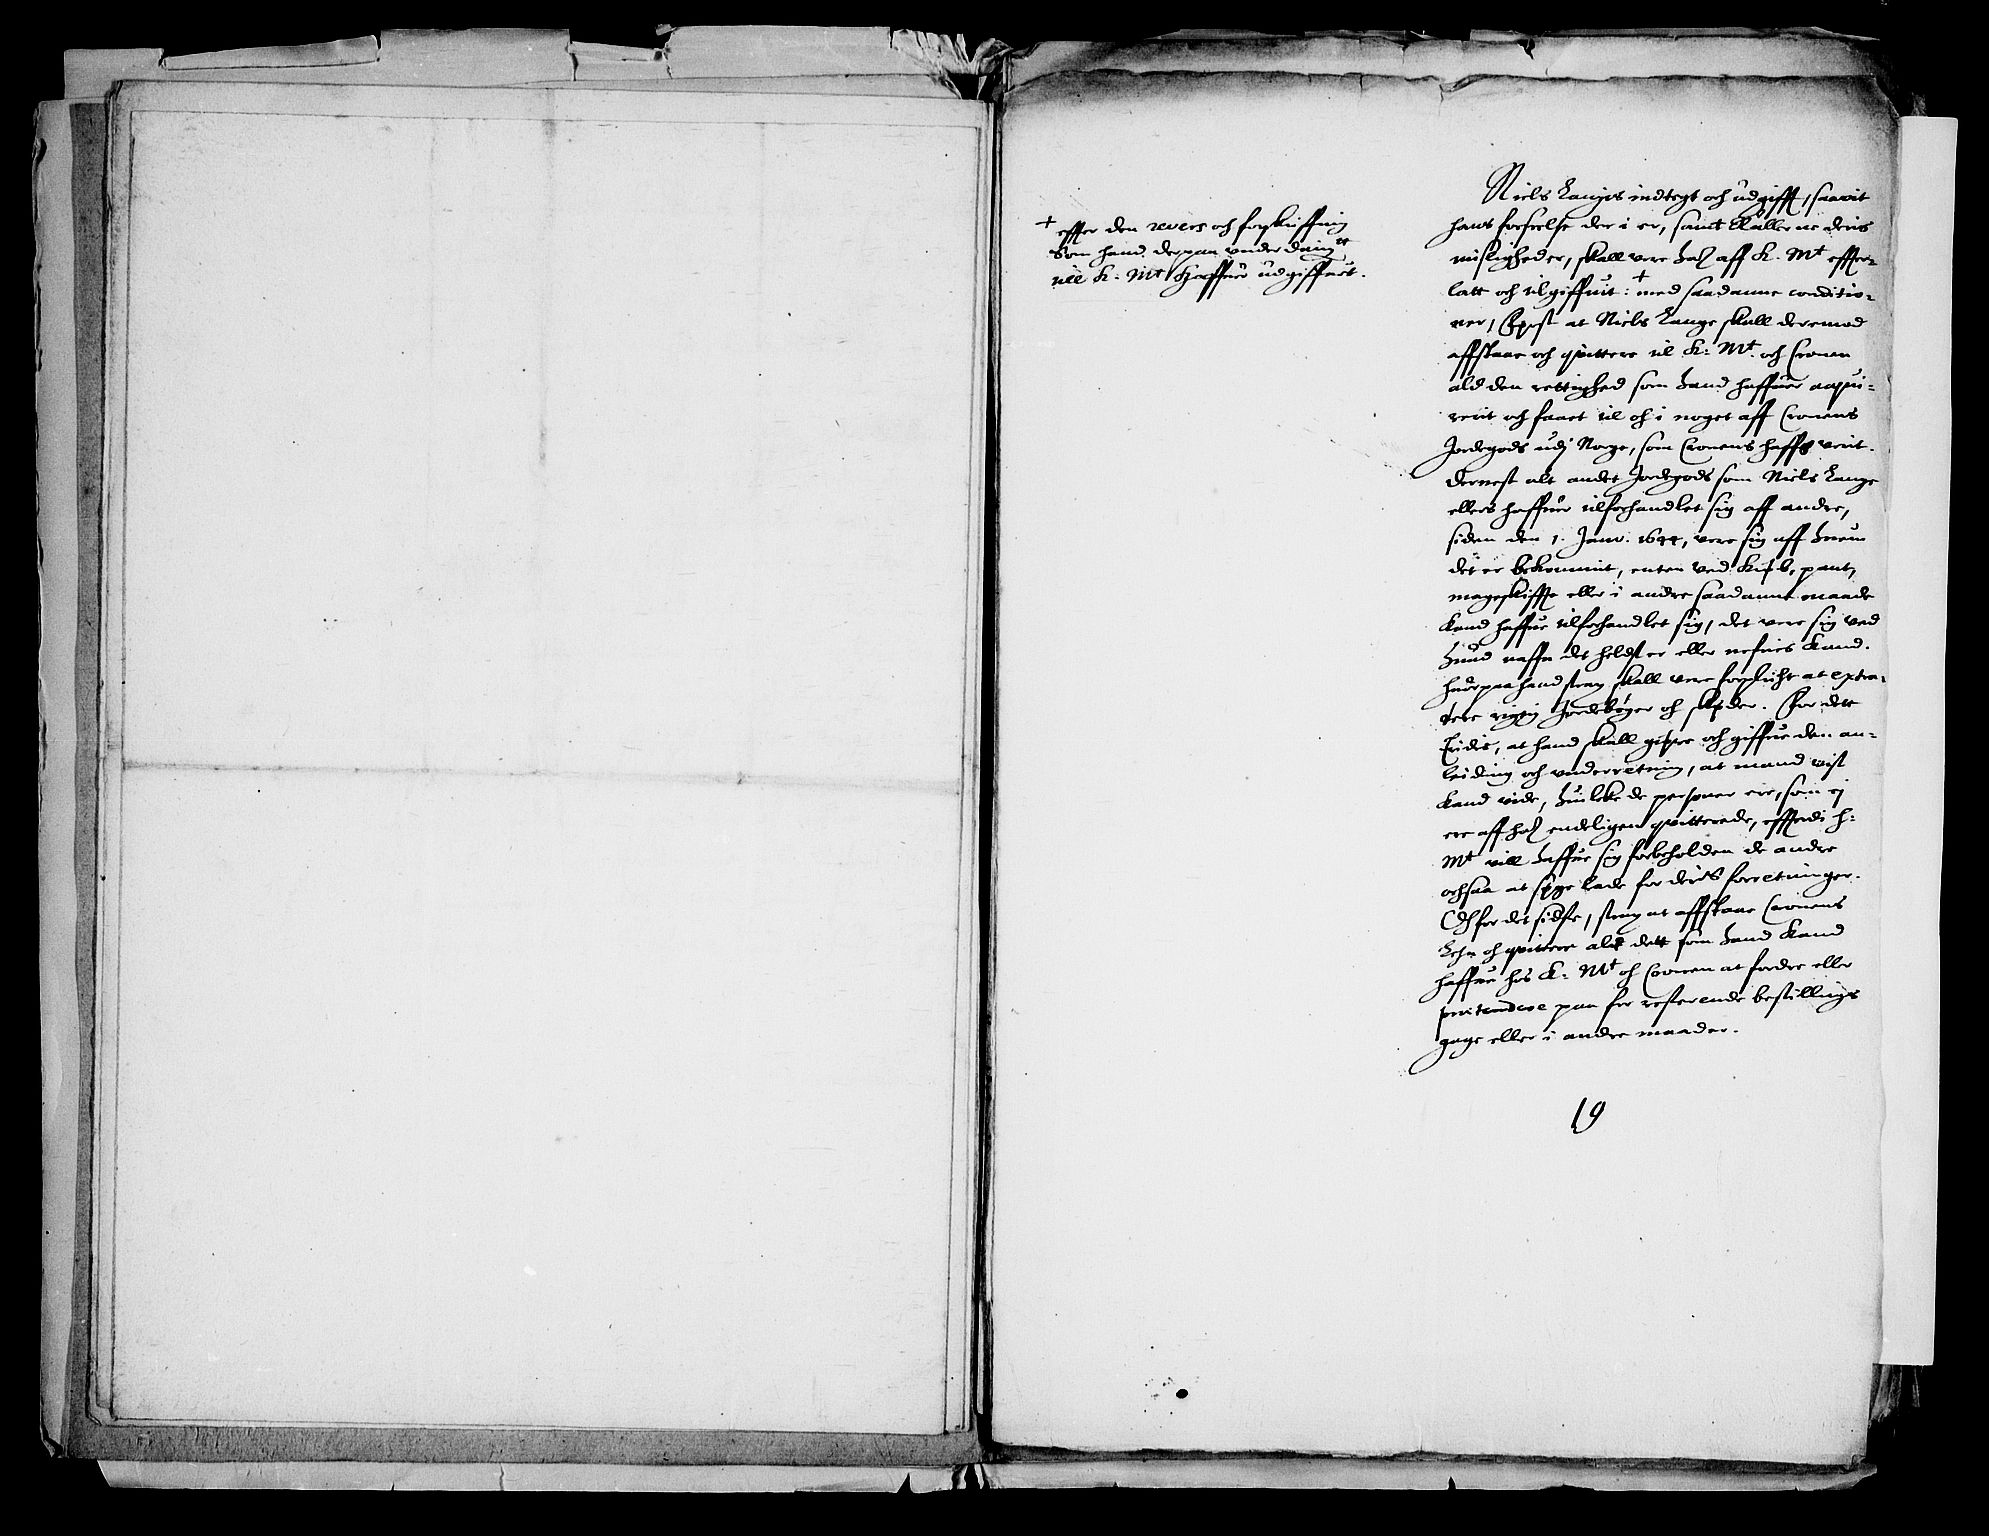 + effter den revers och forskriffning
Som hand derpaa underdanigst
till K: Mt haffuer udgiffuet.
Niels Langes indtegt och udgifft, saavit
hans forseelse der i er, samt Mallerne deris
misligheder, skall vere aff K. Mt effter-
latt och tilgiffuit: + med saadanne conditio-
ner, Først at Niels Lange skall deremod
affstaae och quittere til K: Mt och Cronen
ald den rettighed som hand haffuer aqui-
rerit och faaet til och i noget aff Cronens
Jordegods udj Norge, som Cronens haffr verit.
dernest alt andet Jordegods som Niels Lange
ellers haffuer tilforhandlet sig aff andre,
siden den 1. Janv. 1644, vere sig aff huem
det er bekommit, enten ved kiøb, pant,
mageskiffte eller i andre saadanne maade
kand haffue tilforhandlet sig, det vere sig ved
huad naffn det heldst er eller nefnis kand.
huorpaa hand strax skall vere forplicht at extra-
dere rigtig Jordebøger och skøder. For det
Tridie, at hand skall giøre och giffue den an-
leiding och underretning, at mand vist
kand vide, huilcke de personer ere, som ej
ere aff endeligen quitterede, effterdi H:
Mt vill haffue sig forbeholden de andre
ochsaa at søge lade for deris forretninger.
Och for det sidste, strax at affstaae Cronens
Lehn och quittere alt dett som hand kand
haffue hos K: Mt och Cronen at fordre eller
prætendere paa for resterende bestillings
gage eller i andre maader.
19